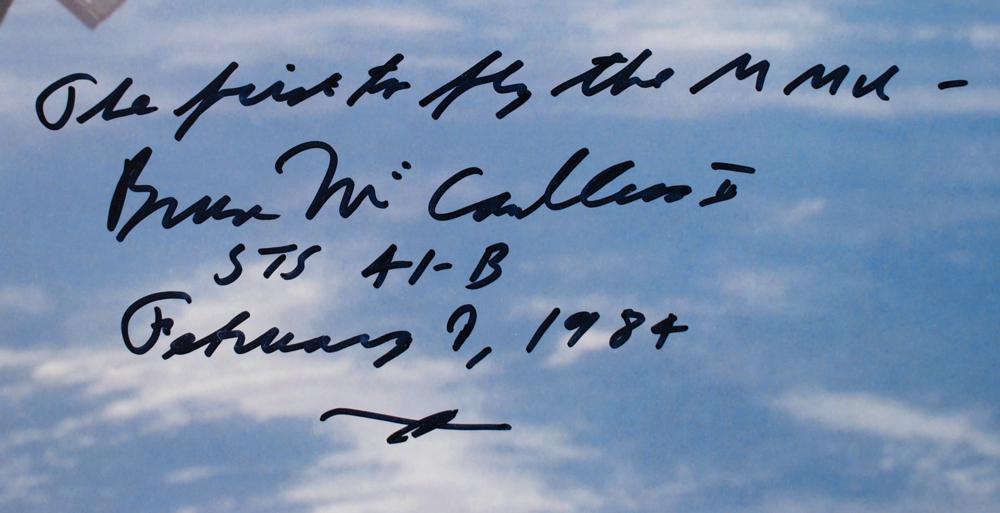 The first to fly the MMU -
Bruce McCandless II
STS 41-B
February 7, 1984